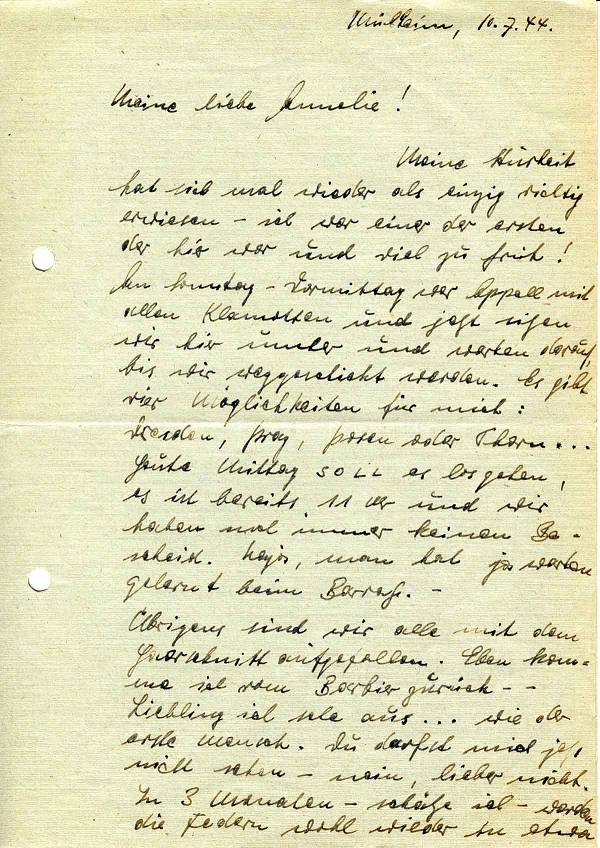 Mülheim, 10.7.44.
Meine liebe Annelie!
Meine
hat sich mal wieder als einzig richtig
erwiesen – ich war einer der ersten
der hier war und viel zu früh!
Am Sonntag-Vormittag war Appell mit
allen Klamotten und jetzt sitzen
wir hier und warten darauf,
bis wir weggeschickt werden. Es gibt
vier Möglichkeiten für mich:
Dresden, Prag, Posen oder Thorn...
Heute Mittag SOLL es losgehen,
es ist bereits 11 Uhr und wir
haben noch immer keinen Be-
scheid. Naja, man hat ja warten
gelernt beim Barras. –
Übrigens sind wir alle mit dem
Haarschnitt aufgefallen. Eben kom-
me ich vom Barbier zurück – –
Liebling ich sehe aus... wie der
erste Mensch. Du darfst mich jetzt
nicht sehen – nein, lieber nicht.
In 3 Monaten – schätze ich – werden
die Federn wohl wieder in etwa